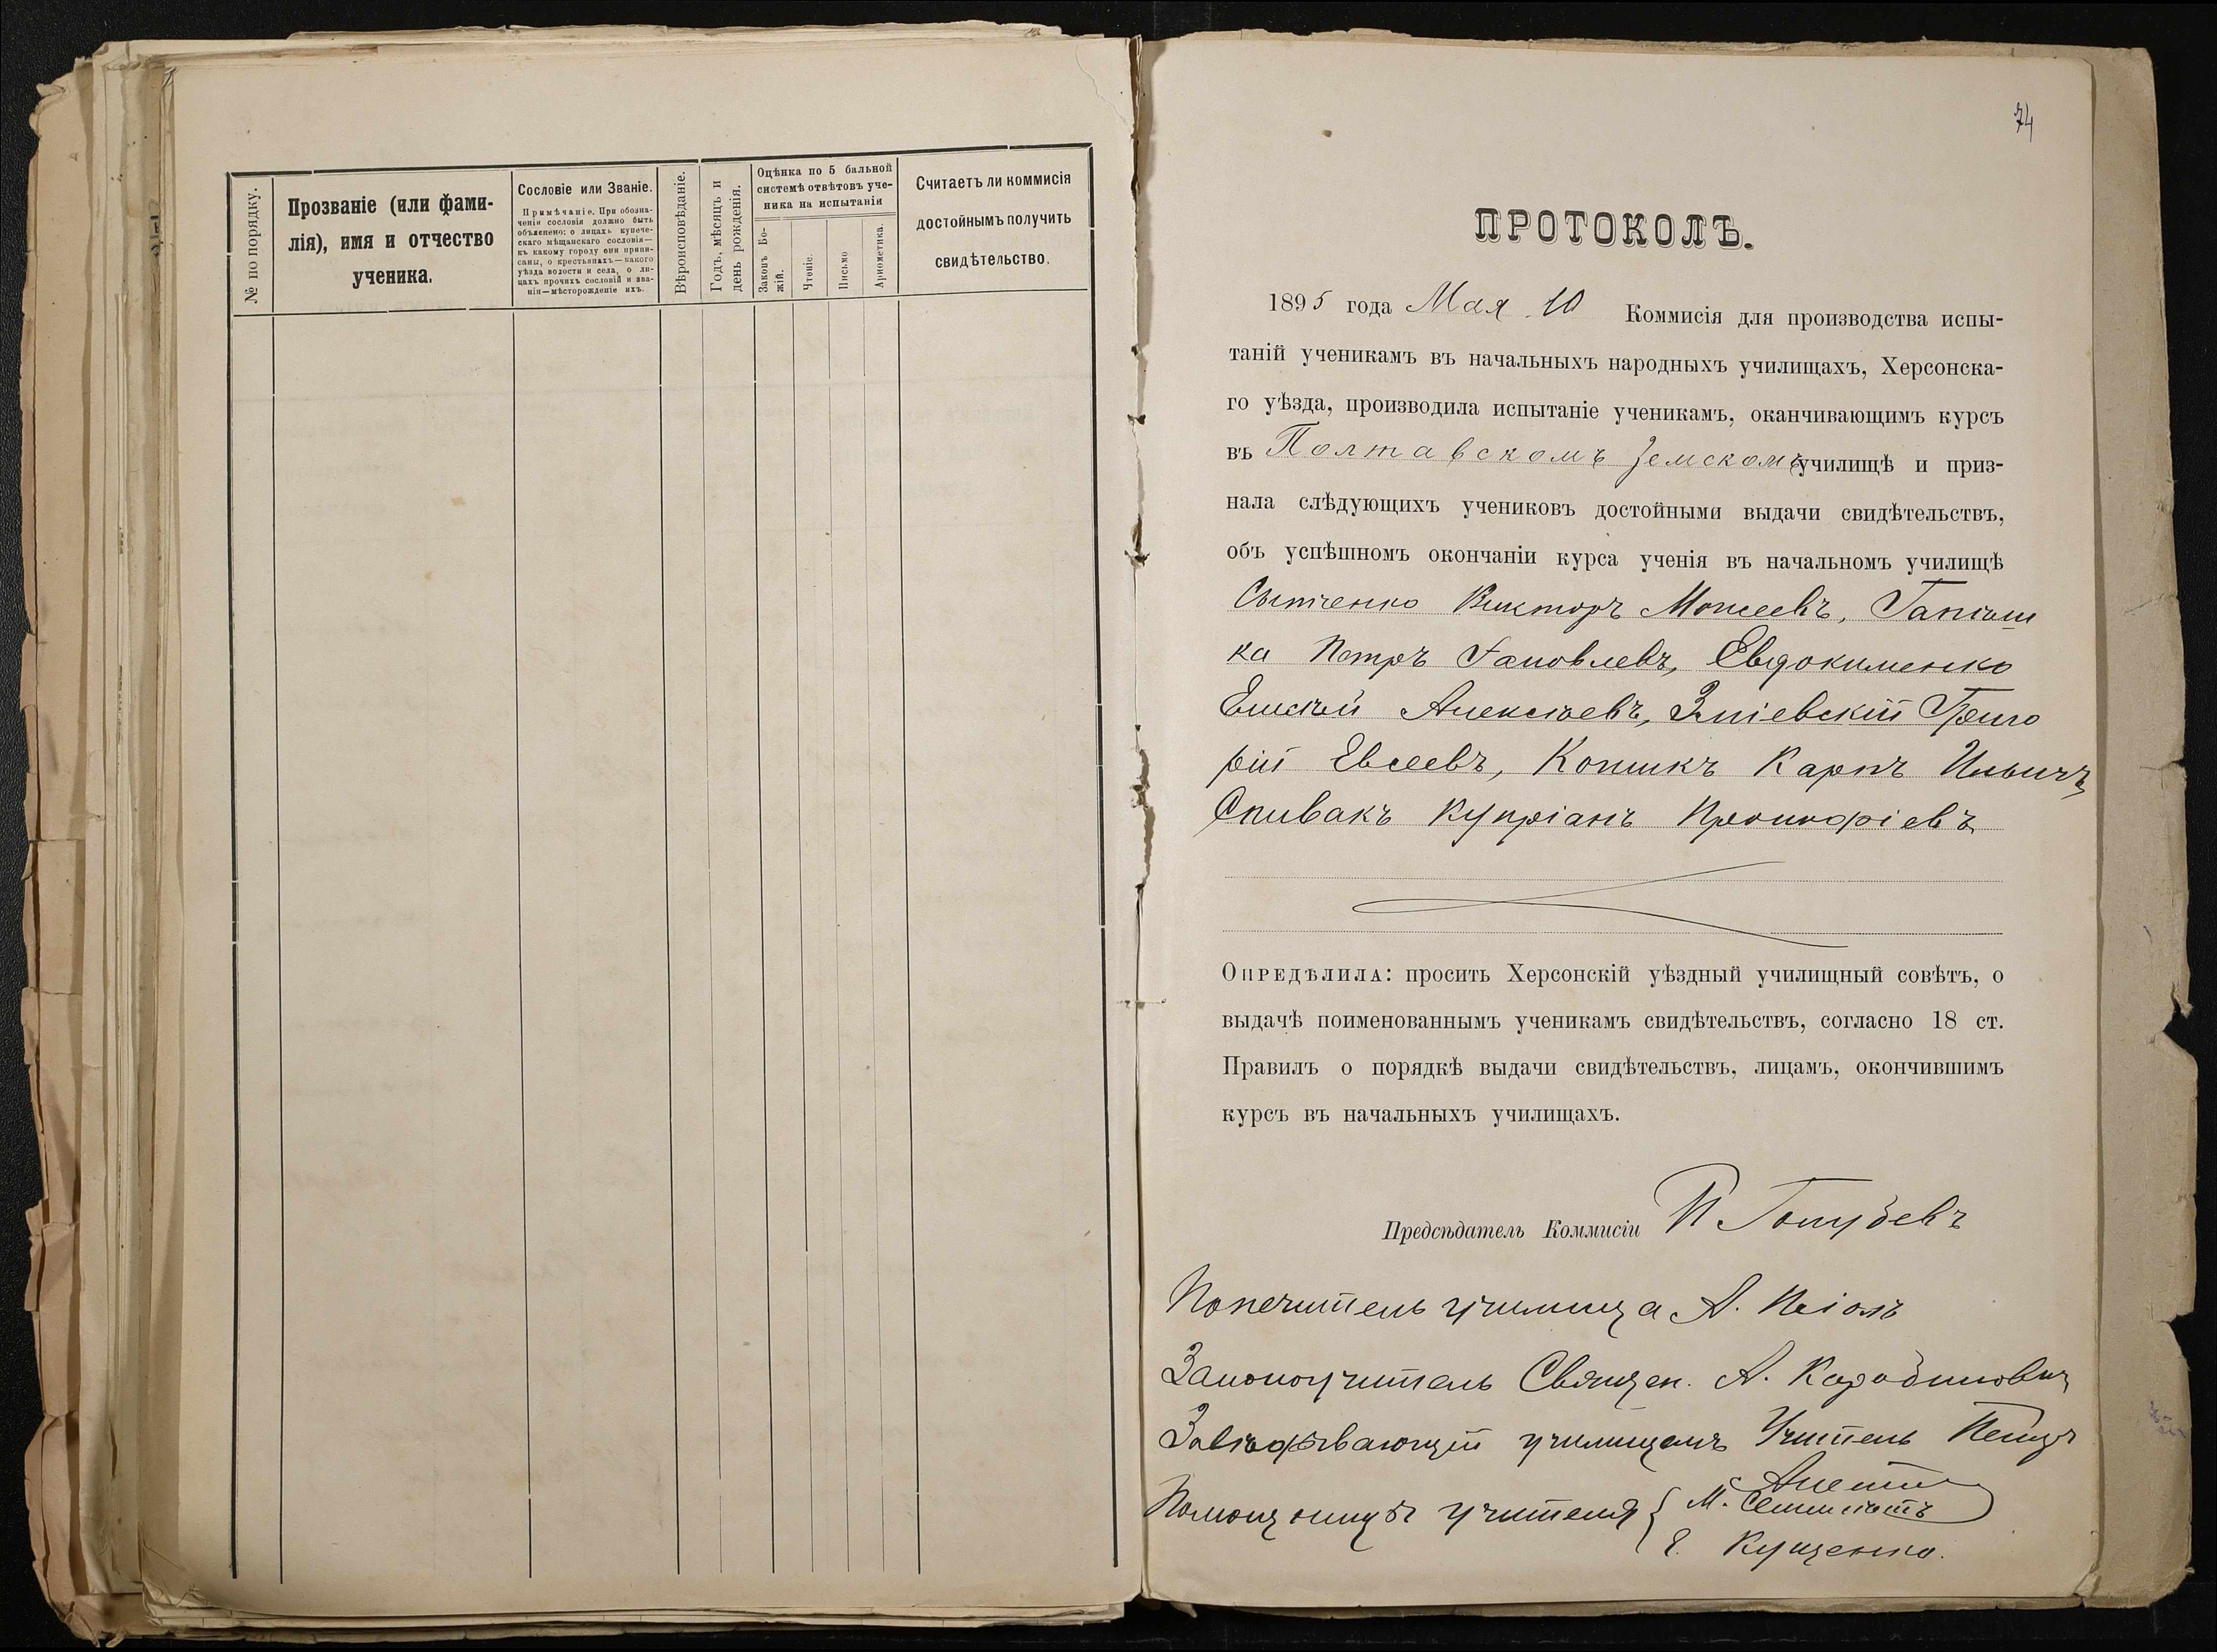 № по порядку.
Прозваніе (или фами-
лія), имя и отчество
ученика.
Сословіе или Званіе.
Примѣчаніе. При обозна-
ченіи сословія должно быть
объяснено: о лицахъ купече-
скаго мѣщанскаго сословія—
къ какому городу они припи-
саны, о крестьянахъ—какого
уѣзда волости и села, о ли-
цахъ прочихъ сословій и зва-
нія—мѣсторожденіе ихъ.
Вѣроисповѣданіе.
Годъ, мѣсяцъ и
день рожденія.
Оцѣнка по 5 бальной
системѣ отвѣтовъ уче-
ника на испытаніи
Законъ Бо-
жій.
Чтеніе.
Письмо
Ариѳметика.
Считаетъ ли коммисія
достойнымъ получить
свидѣтельство.
74
ПРОТОКОЛЪ.
1895 года Мая 10 Коммисія для производства испы-
таній ученикамъ въ начальныхъ народныхъ училищахъ, Херсонска-
го уѣзда, производила испытаніе ученикамъ, оканчивающимъ курсъ
въ Полтавскомъ земскомъ училищѣ и приз-
нала слѣдующихъ учениковъ достойными выдачи свидѣтельствъ,
объ успѣшномъ окончаніи курса ученія въ начальномъ училищѣ
Викторъ Моисеевъ,
ка Петръ Яковлевъ, Евдокименко
Елисѣй Алексѣевъ, Зміевскій Григо
рій Евсеевъ, Копикъ Карпъ Ильичъ,
Спивакъ Купріанъ Прокофіевъ
Опредѣлила: просить Херсонскій уѣздный училищный совѣтъ, о
выдачѣ поименованнымъ ученикамъ свидѣтельствъ, согласно 18 ст.
Правилъ о порядкѣ выдачи свидѣтельствъ, лицамъ, окончившимъ
курсъ въ начальныхъ училищахъ.
Предсѣдатель Коммисіи П Голубевъ
Попечитель училища А.
Законоучитель Священ. А.
Завѣдывающій училищемъ Учитель Петръ
Помощницы учителя { М.
Е. Кущенко.